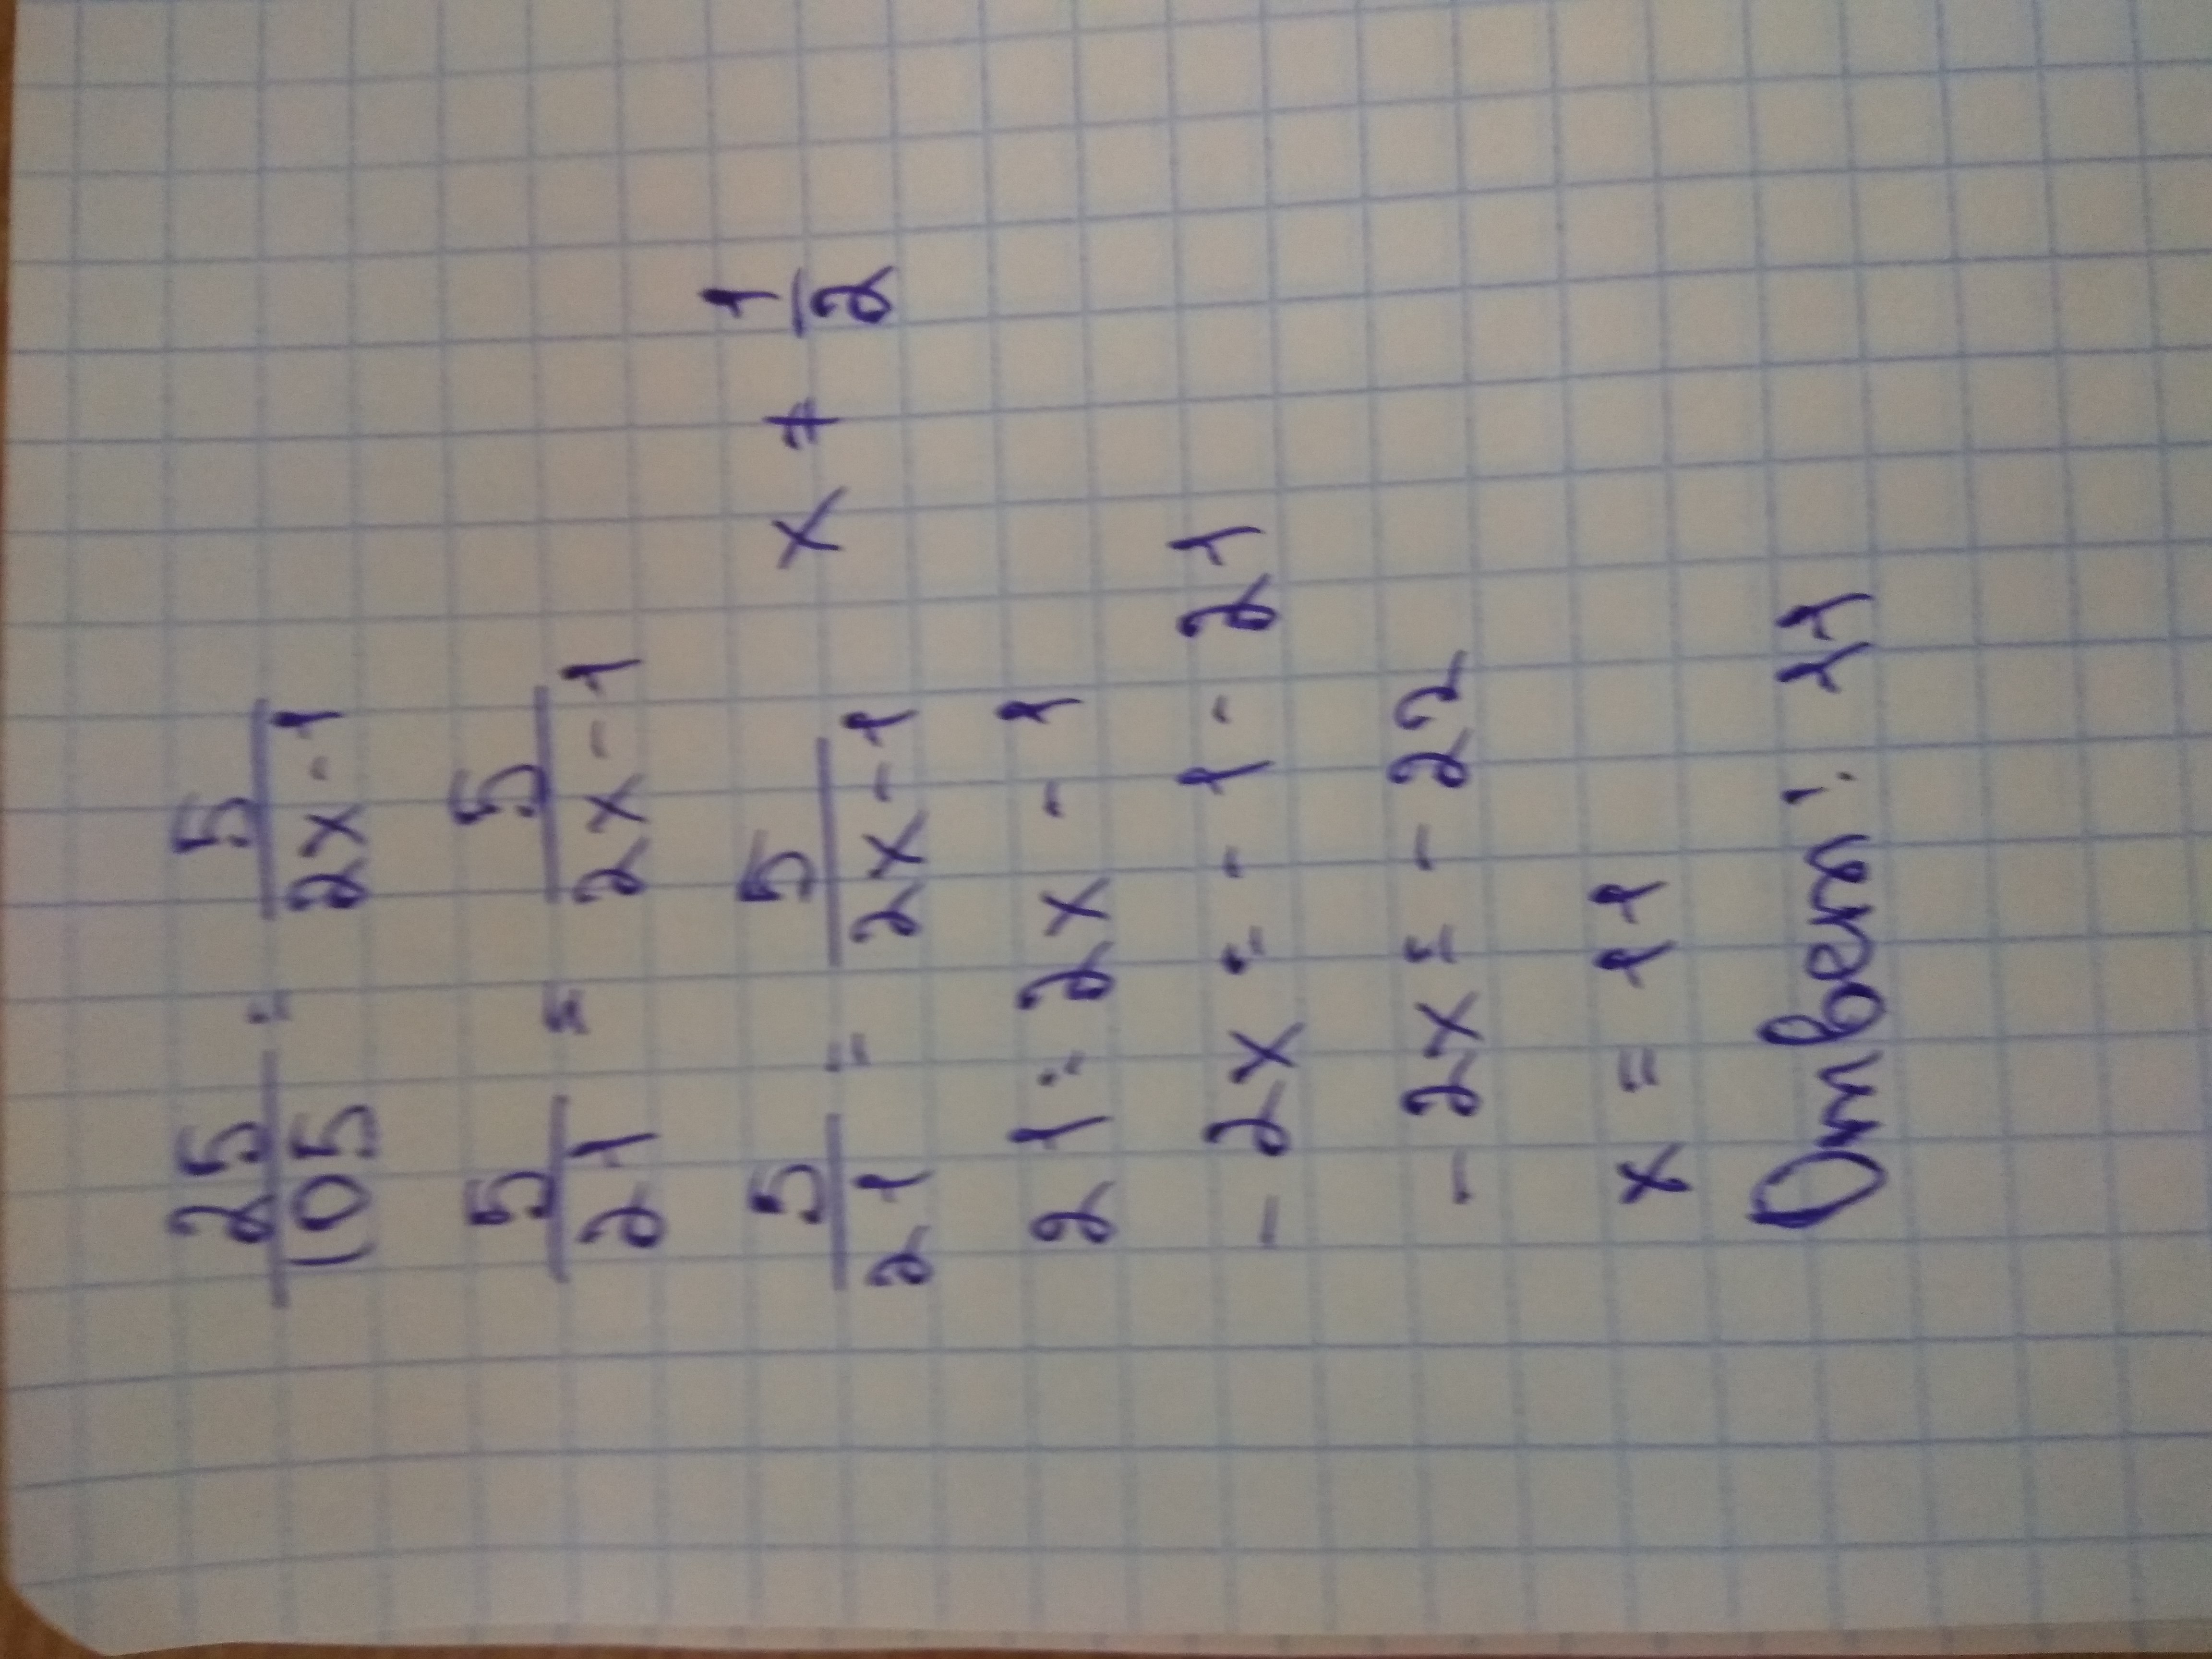 25/105 = 5/2x-1
5/21 = 5/2x-1
5/21 = 5/2x-1 x ≠ 1/2
21 = 2x - 1
-2x = -1 - 21
-2x = -22
x = 11
Ответ: 11